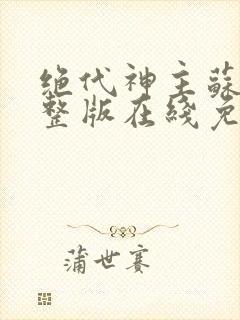 绝代神主蘇
整版在綫免
蒲世赛